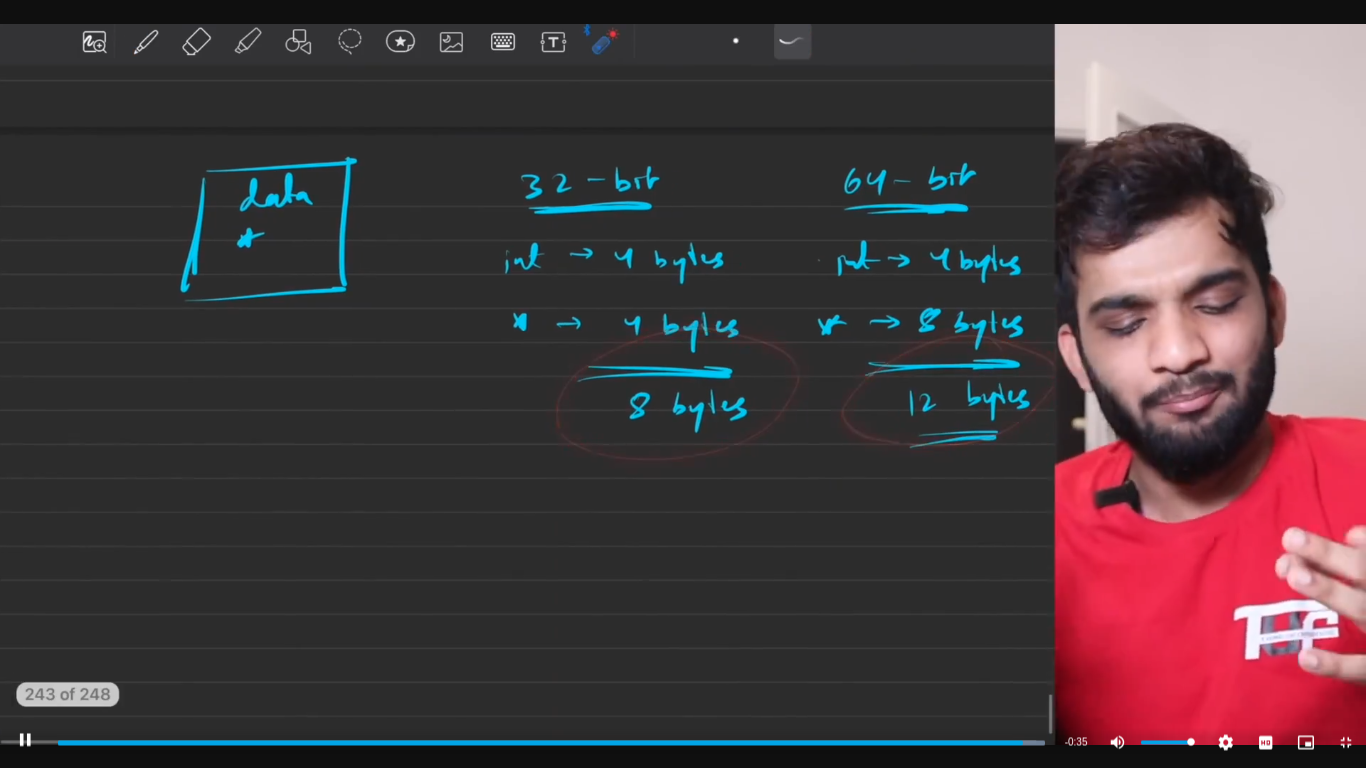 data
*
32-bit
int → 4 bytes
* → 4 bytes
8 bytes
64-bit
int → 4 bytes
* → 8 bytes
12 bytes
TUF
243 of 248
-0:35
HQ